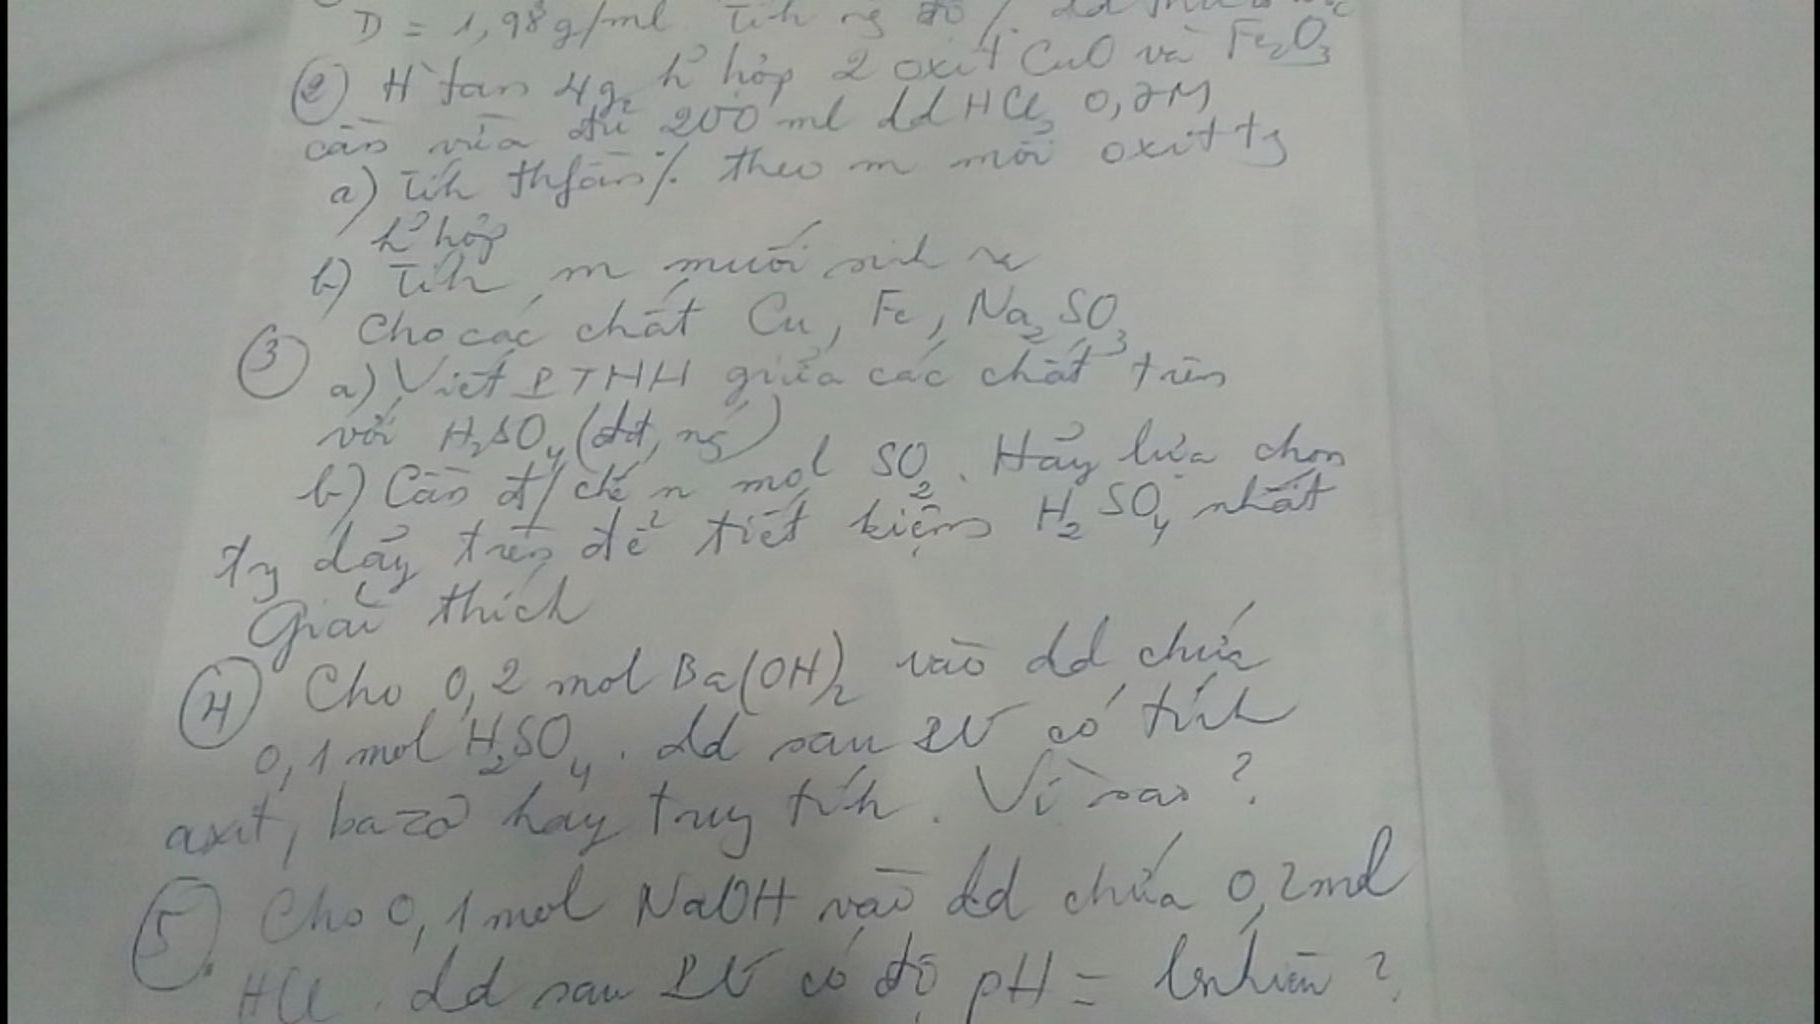 D = 1,98g/ml. Tíh ng độ %. dd
② H tan 4g h² hợp 2 oxit CuO và Fe₂O₃
cần vừa đủ 200 ml dd HCl 0,7M
a) Tíh thfần % theo m mỗi oxit tg
h² hợp
b) Tíh m muối sinh ra
③ Cho các chất Cu, Fe, Na₂SO₃
a) Viết PTHH giữa các chất trên
với H₂SO₄ (đđ, ng)
b) Cần đ/chế n mol SO₂. Hãy lựa chọn
tg dãy trên để tiết kiệm H₂SO₄ nhất
Giải thích
④ Cho 0,2 mol Ba(OH)₂ vào dd chứa
0,1 mol H₂SO₄. dd sau PƯ có tính
axit, bazơ hay trug tíh. Vì sao?
⑤ Cho 0,1 mol NaOH vào dd chứa 0,2mol
HCl. dd sau PƯ có độ pH = bnhiêu?